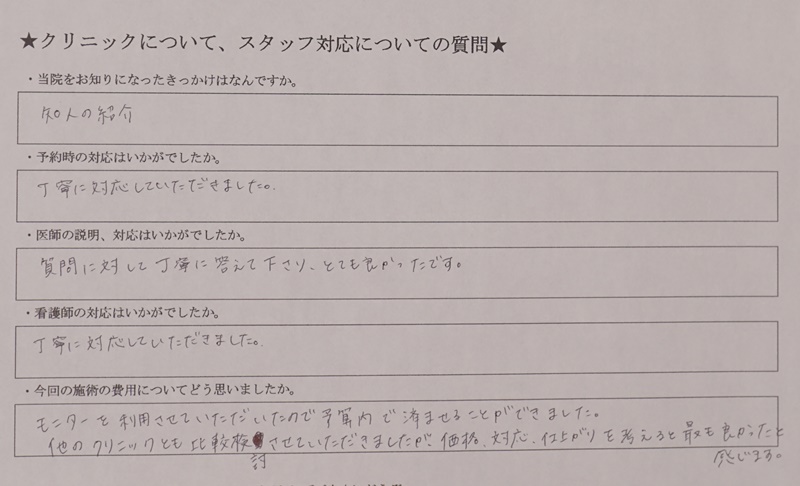 ★クリニックについて、スタッフ対応についての質問★
・当院をお知りになったきっかけはなんですか。
知人の紹介
・予約時の対応はいかがでしたか。
丁寧に対応していただきました。
・医師の説明、対応はいかがでしたか。
質問に対して丁寧に答えて下さり、とても良かったです。
・看護師の対応はいかがでしたか。
丁寧に対応していただきました。
・今回の施術の費用についてどう思いましたか。
モニターを利用させていただいたので予算内で済ませることができました。
他のクリニックとも比較検討させていただきましたが、価格、対応、仕上がりを考えると最も良かったと
感じます。